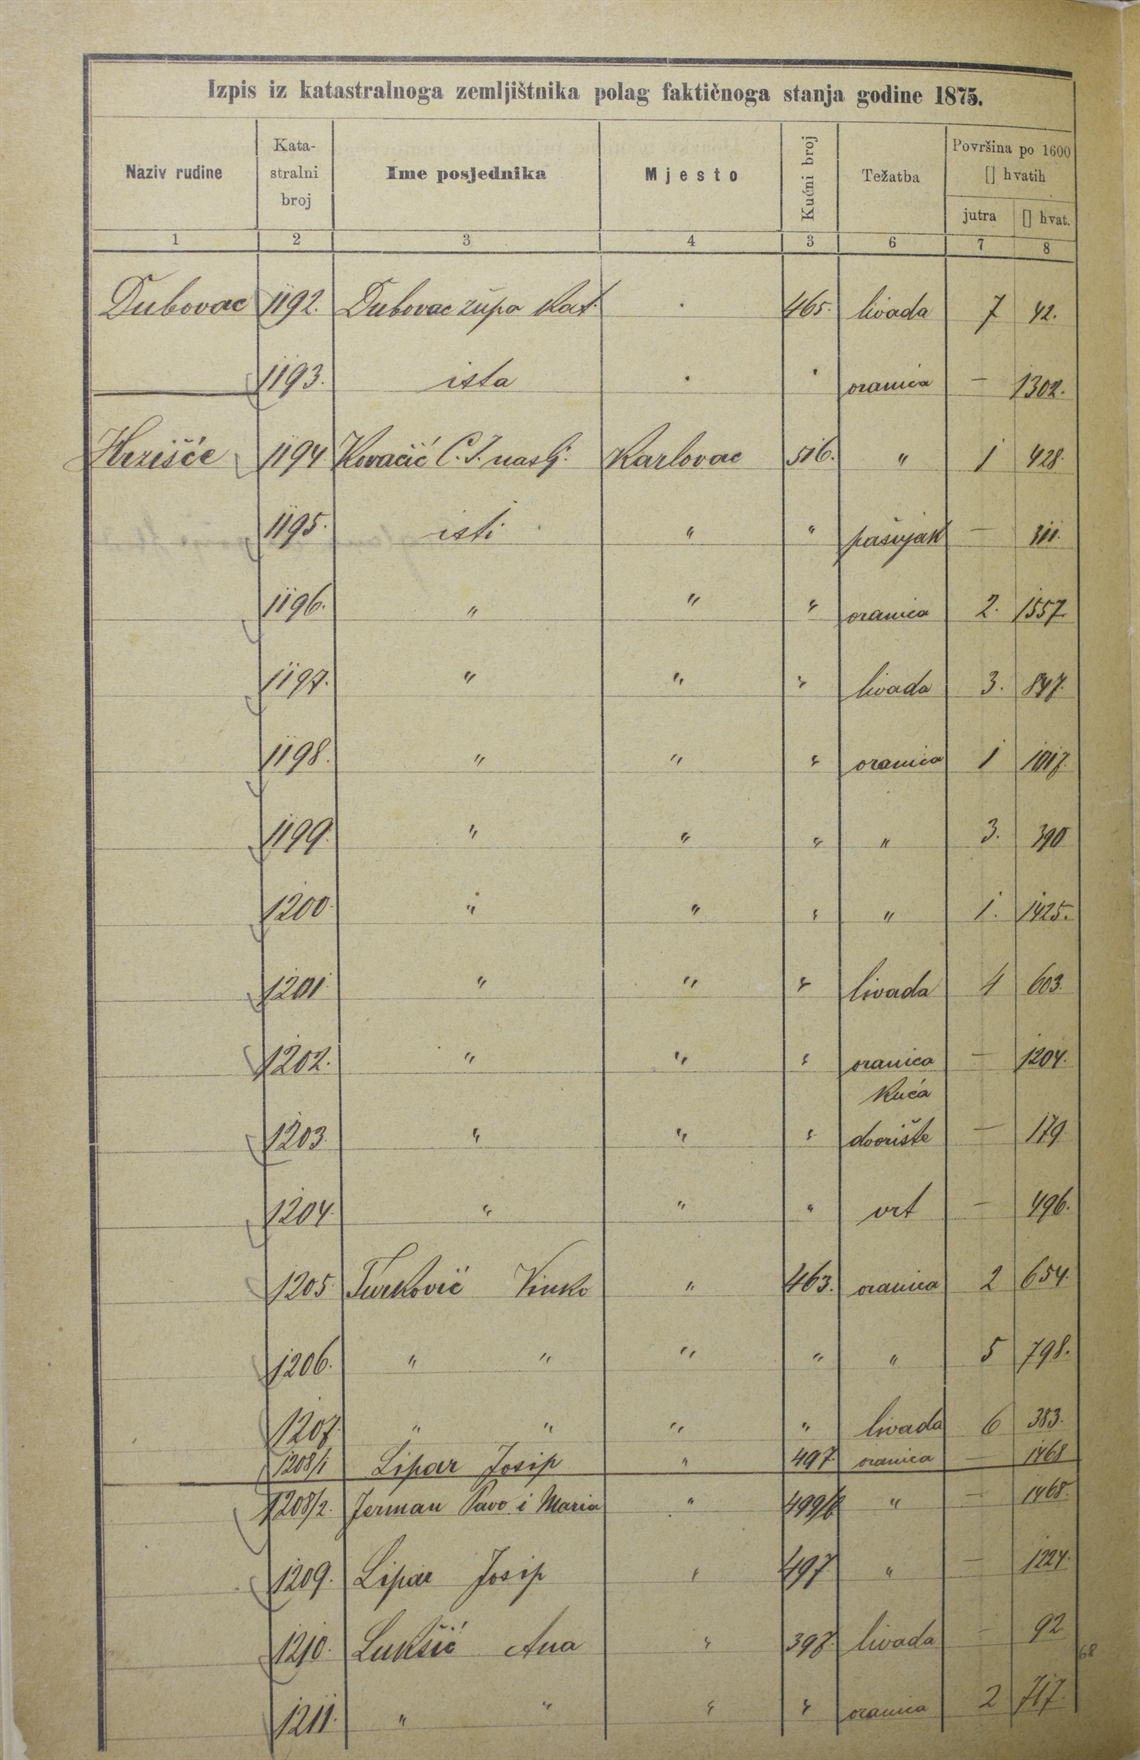 Izpis iz katastralnoga zemljištnika polag faktičnoga stanja godine 1875.
Naziv rudine Kata-stralni broj Ime posjednika Mjesto Kućni broj Težatba Površina po 1600 [] hvatih
jutra [] hvat.
1 2 3 4 3 6 7 8
Dubovac 1192. Dubovac župa kat. . 465. livada 7 42.
1193. ista . . oranica — 1302.
Hrzišće 1194 Kovačić C. J. naslj. Karlovac 516. " 1 428.
1195. isti " " pašnjak — 311.
1196. " " " oranica 2. 1557
1197. " " " livada 3. 847.
1198. " " " oranica 1 1017.
1199. " " " " 3. 390
1200. " " " " 1. 1425.
1201 " " " livada 4 603.
1202. " " " oranica — 1204.
kuća
1203. " " " dvorište — 179
1204. " " " vrt — 496.
1205. Turković Vinko " 463. oranica 2 654.
1206. " " " " " 5 798.
1207. " " " " livada 6 383.
1208/1 Lipar Josip " 497 oranica — 1468
1208/2. Jerman Pavo i Maria " 499/6 " — 1468.
1209. Lipar Josip " 497 " — 1224.
1210. Lukšić Ana " 397. livada — 92
68
1211. " " " " oranica 2 717.